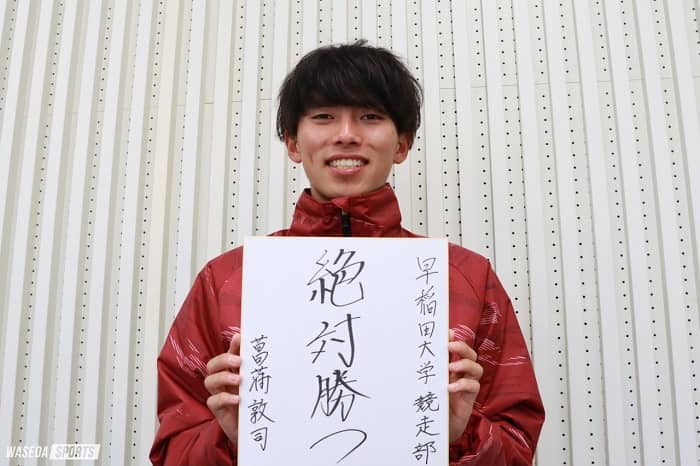 早稲田大学 競走部
絶対勝つ
菖蒲敦司
WASEDA SPORTS